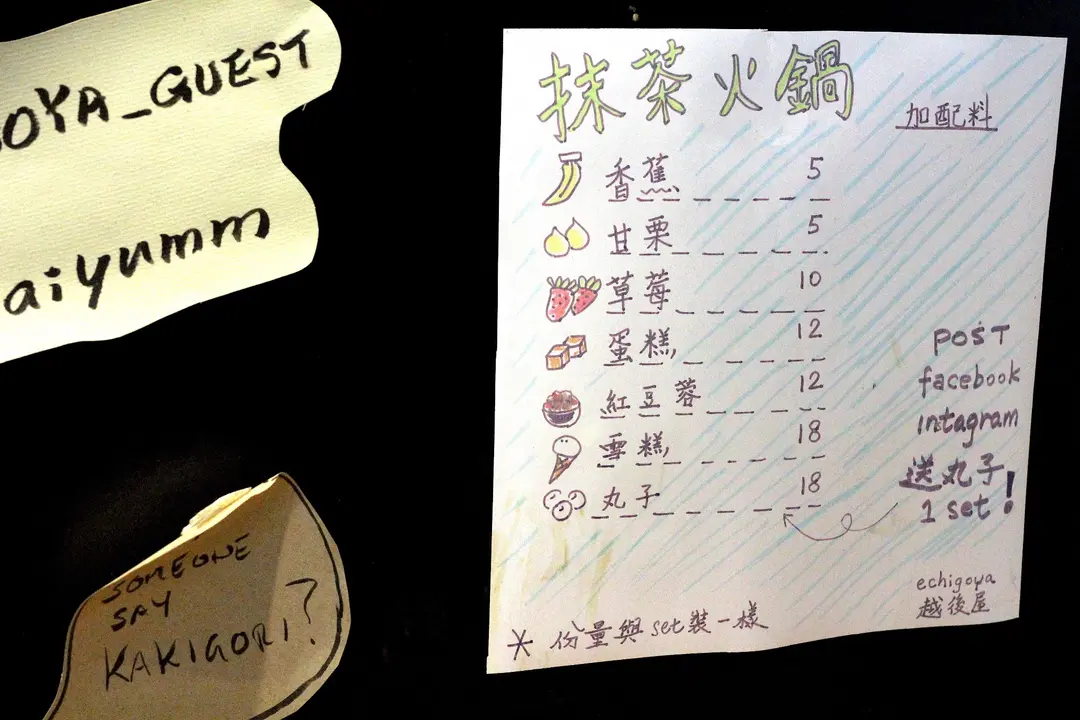 OYA_GUEST
aiyumm
SOMEONE
SAY
KAKIGORI?
抹茶火鍋
加配料
香蕉 5
甘栗 5
草莓 10
蛋糕 12
紅豆蓉 12
雪糕 18
丸子 18
POST
facebook
intagram
送丸子
1 set!
echigoya
越後屋
* 份量與set裝一樣